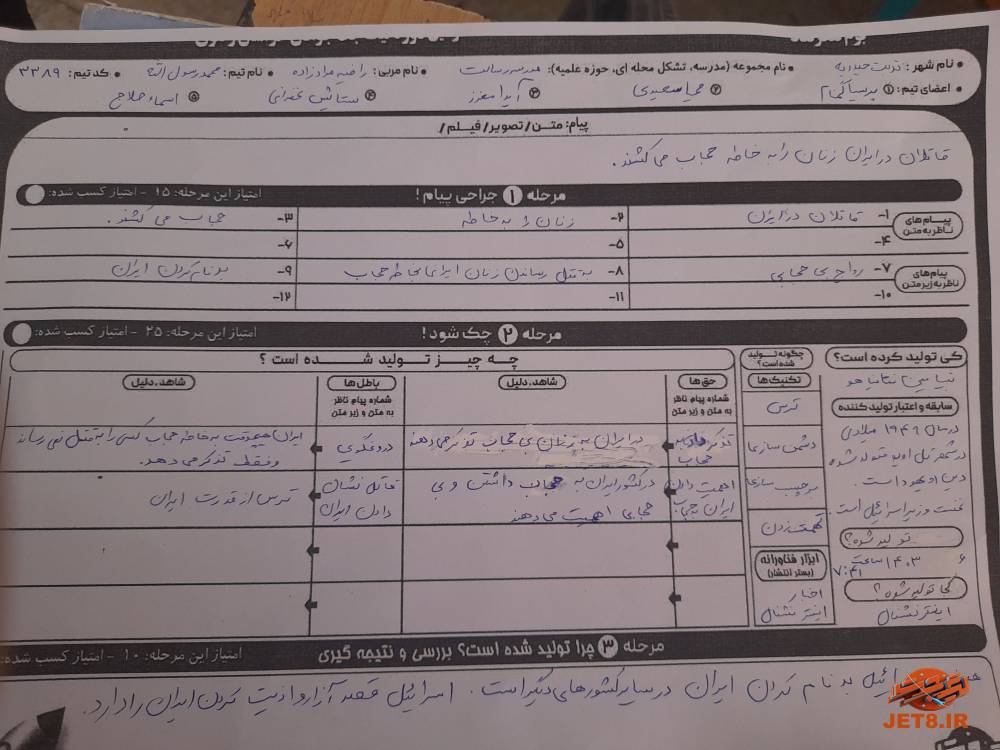 • نام شهر: تربت حیدریه • نام مجموعه (مدرسه، تشکل محله ای، حوزه علمیه): مدرسه رسالت • نام مربی: راضیه مرادزاده • نام تیم: محمد رسول الله • کد تیم: ۳۳۸۹
• اعضای تیم: ① پرسیا ② محیا سعیدی ③ آیدا مغرز ④ ستایش ⑤ اسماء حلاج
پیام: متن/ تصویر/ فیلم/
قاتلان در ایران زنان را به خاطه حجاب می کشند.
مرحله ① جراحی پیام! امتیاز این مرحله: ۱۵ - امتیاز کسب شده:
پیام های ناظر به متن
۱- قاتلان در ایران ۲- زنان را به خاطه ۳- حجاب می کشند.
۴- ۵- ۶-
پیام های ناظر به زیر متن
۷- رواج بی حجابی ۸- به قتل رساندن زنان ایرانی بخاطر حجاب ۹- بدنام کردن ایران
۱۰- ۱۱- ۱۲-
مرحله ② چک شود! امتیاز این مرحله: ۲۵ - امتیاز کسب شده:
کی تولید کرده است؟
بنیامین نتانیاهو
سابقه و اعتبار تولید کننده
در سال ۱۹۴۹ میلادی
در شهر تل اویو متولد شده
دین او یهود است.
نخست وزیر اسرائیل است.
تولید شده؟
۱۴۰۳ ساعت ۷:۴۱
کجا تولید شده؟
اینترنشنال
چگونه تولید شده است؟
تکنیک ها
ترس
دشمن سازی
برچسب سازی
تهمت زدن
ابزار فناورانه (بستر انتشار)
اخبار
اینترنشنال
چه چیز تولید شده است؟
حق ها شاهد، دلیل باطل ها شاهد، دلیل
شماره پیام ناظر به متن و زیر متن شماره پیام ناظر به متن و زیر متن
تذکر دادن به حجاب
در ایران به زنان بی حجاب تذکر می دهند
دروغگویی
ایران هیچوقت به خاطر حجاب کسی را به قتل نمی رساند
و فقط تذکر می دهد.
اهمیت دادن ایران به حجاب
در کشور ایران به حجاب داشتن و بی
حجابی اهمیت می دهند
قاتل نشان دادن ایران
ترس از قدرت ایران
مرحله ③ چرا تولید شده است؟ بررسی و نتیجه گیری امتیاز این مرحله: ۱۰ - امتیاز کسب شده:
بد نام کردن ایران در سایر کشورهای دیگر است. اسرائیل قصد آزار و اذیت کردن ایران را دارد.
JET8.IR